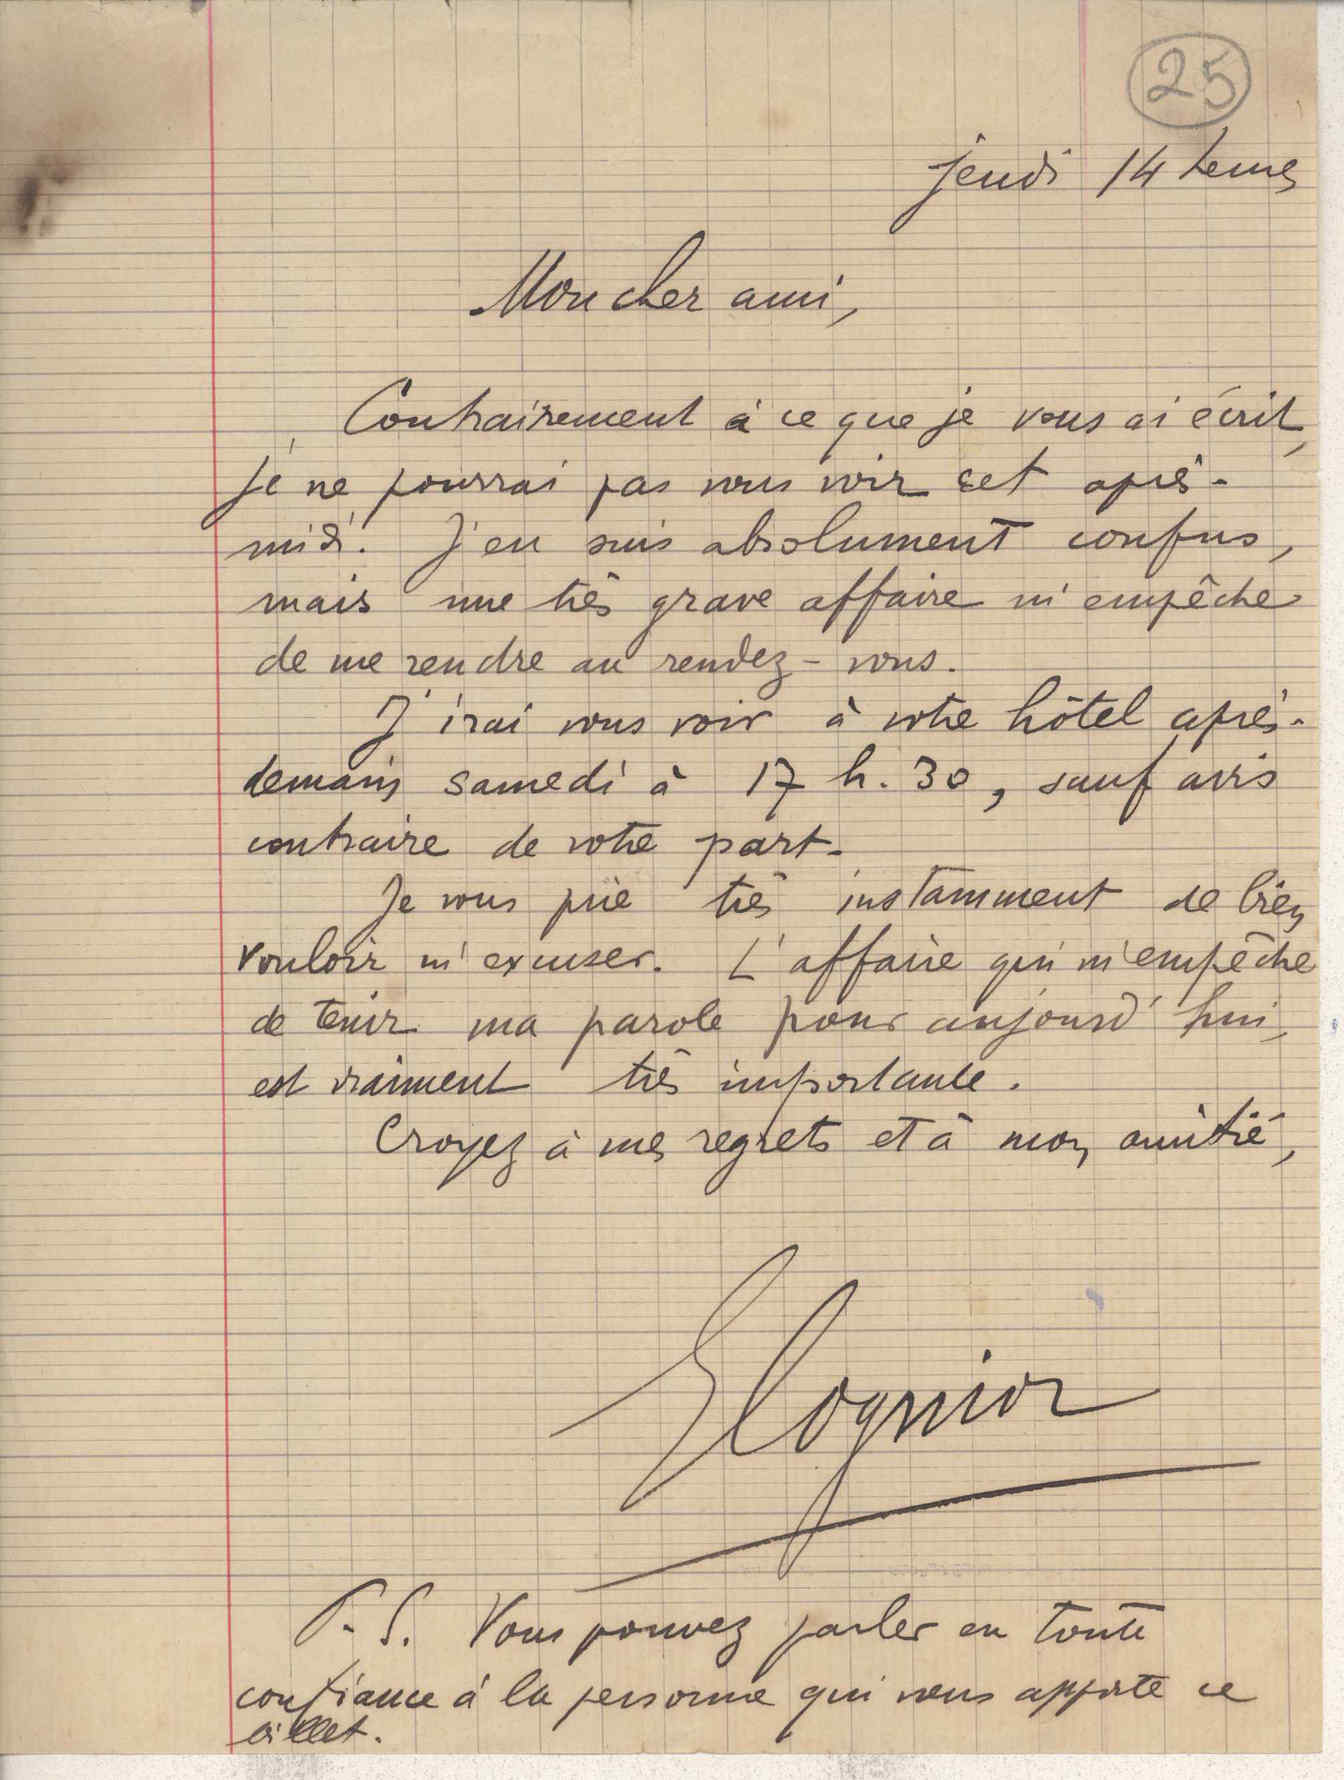 25
jeudi 14 heures
Mon cher ami,
Contrairement à ce que je vous ai écrit,
je ne pourrai pas vous voir cet après-
midi. J'en suis absolument confus,
mais une très grave affaire m'empêche
de me rendre au rendez-vous.
J'irai vous voir à votre hôtel après-
demain samedi à 17 h. 30, sauf avis
contraire de votre part.
Je vous prie très instamment de bien
vouloir m'excuser. L'affaire qui m'empêche
de tenir ma parole pour aujourd'hui,
est vraiment très importante.
Croyez à mes regrets et à mon amitié,
P.S. Vous pouvez parler en toute
confiance à la personne qui vous apporte ce
billet.